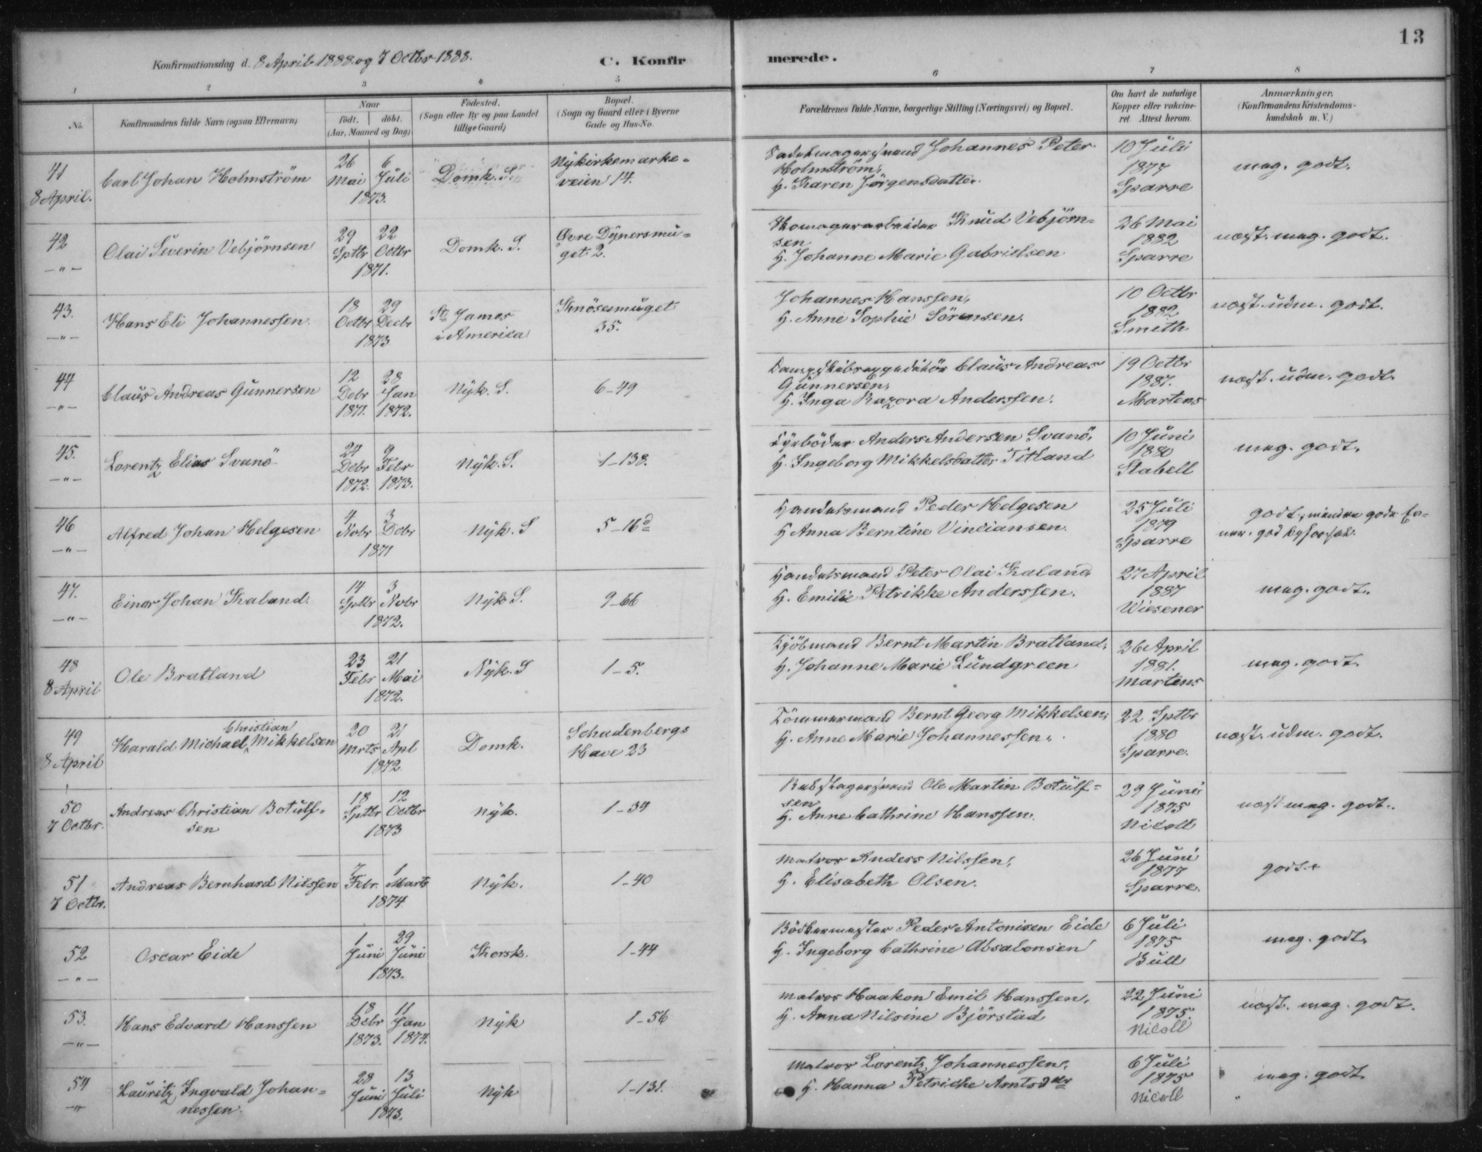 13
Konfirmationsdag d. 8 April 1888 og 7 Octbr 1888.
C. Konfirmerede.
1 2 3 4 5 6 7 8
No.
Konfirmandens fulde Navn (ogsaa Efternavn)
Naar
født. døbt.
(Aar, Maaned og Dag)
Fødested.
(Sogn eller By og paa Landet
tillige Gaard)
Bopæl.
(Sogn og Gaard eller i Byerne
Gade og Hus-No.
Forældrenes fulde Navne, borgerlige Stilling (Næringsvei) og Bopæl.
Om havt de naturlige
Kopper eller vaksine-
ret Attest herom.
Anmærkninger.
(Konfirmandens Kristendoms-
kundskab m. V.)
41
8 April.
Carl Johan Holmström
26 Mai
6 Juli
1873.
Domk. S.
Nykirkemarke-
veien 14.
Johannes Peter
Holmström,
H. Karen Jörgensdatter.
10 Juli
1877
Sparre
meg. godt.
42
-"-
Olai Severin Vebjörnsen
29 Sptbr
22 Octbr
1871.
Domk. S.
Øvre Dynersmu-
get. 2.
Skomagerarbeider Knud Vebjörn-
sen
H. Johanne Marie Gabrielsen
26 Mai
1882
Sparre
næst. meg. godt.
43.
-"-
Hans Eli Johannessen.
18 Octbr
29 Decbr
1873
St. James
America
Knösesmuget
35.
Johannes Hanssen,
H. Anne Sophie Sörensen.
10 Octbr
1882
Smith
næst. udm. godt.
44
-"-
Claus Andreas Gunnersen
12 Debr
1871.
28 Jan
1872.
Nyk. S.
6-49
Dampskibsexpeditör Claus Andreas
Gunnersen,
H. Inga Anderssen.
19 Octbr
1887.
Martens
næst. udm. godt.
45.
-"-
Lorentz Elias Svanö
Debr
1872.
9 Febr
1873.
Nyk. S.
1-138.
Anders Andersen Svanö,
H. Ingeborg Mikkelsdatter Titland
10 Juni
1880
Stabell
meg. godt.
46
-"-
Alfred Johan Helgesen
4 Nobr
3 Debr
1871
Nyk. S
5-16d
Handelsmand Peder Helgesen
H Anna Berntine Vinciansen.
25 Juli
1879
Sparre
godt, mindre gode Ev-
ner. god Opførsel.
47.
-"-
Einar Johan Kaland.
14 Sptbr
3 Nobr
1872.
Nyk S.
9-66
Handelsmand Peter Olai Kaland
H. Emilie Petrikke Anderssen.
27 April
1887
Wiesener
meg. godt.
48
8 April
Ole Bratland
23 Febr
21 Mai
1872.
Nyk. S
1-5.
Kjöbmand Bernt Martin Bratland,
H. Johanne Marie Lundgreen
26 April
1881.
Martens
meg. godt.
49
8 April
Christian
Harald Michael, Mikkelsen
20 Mrts
21 Apl
1872
Domk.
Schudenbergs
Have 23
Tömmermand Bernt Georg Mikkelsen,
H. Anne Marie Johannessen.
22 Sptbr
1880
Sparre.
næst. udm. godt.
50
7 Octbr.
Andreas Christian Botulf-
sen
18 Sptbr
12 Octbr
1873
Nyk.
1-34
Rebslagersvend Ole Martin Botulf-
sen
H. Anne Cathrine Hanssen.
29 Juni
1875
Nicoll
næst meg. godt.
51
7 Octbr.
Andreas Bernhard Nilssen
7 Febr.
1 Marts
1874
Nyk.
1-40
Matros Anders Nilssen,
H. Elisabeth Olsen.
26 Juni
1877
Sparre.
godt.
52
-"-
Oscar Eide
1 Juni
29 Juni
1873.
Korsk.
1-44
Bödkermester Peder Antonisen Eide
H. Ingeborg Cathrine Absalonsen
6 Juli
1875
Bull
meg. godt.
53.
-"-
Hans Edvard Hanssen
18 Debr
1873.
11 Jan
1874.
Nyk
1-56
Matros Haakon Emil Hanssen,
H. Anna Nilsine Björstad
22 Juni
1875.
Nicoll
næst. meg. godt.
54
-"-
Lauritz Ingvald Johan-
nessen.
28 Juni
13 Juli
1873.
Nyk
1-131.
Matros Lorentz Johannessen,
H. Hanna Petrikke
6 Juli
1875
Nicoll
meg. godt.